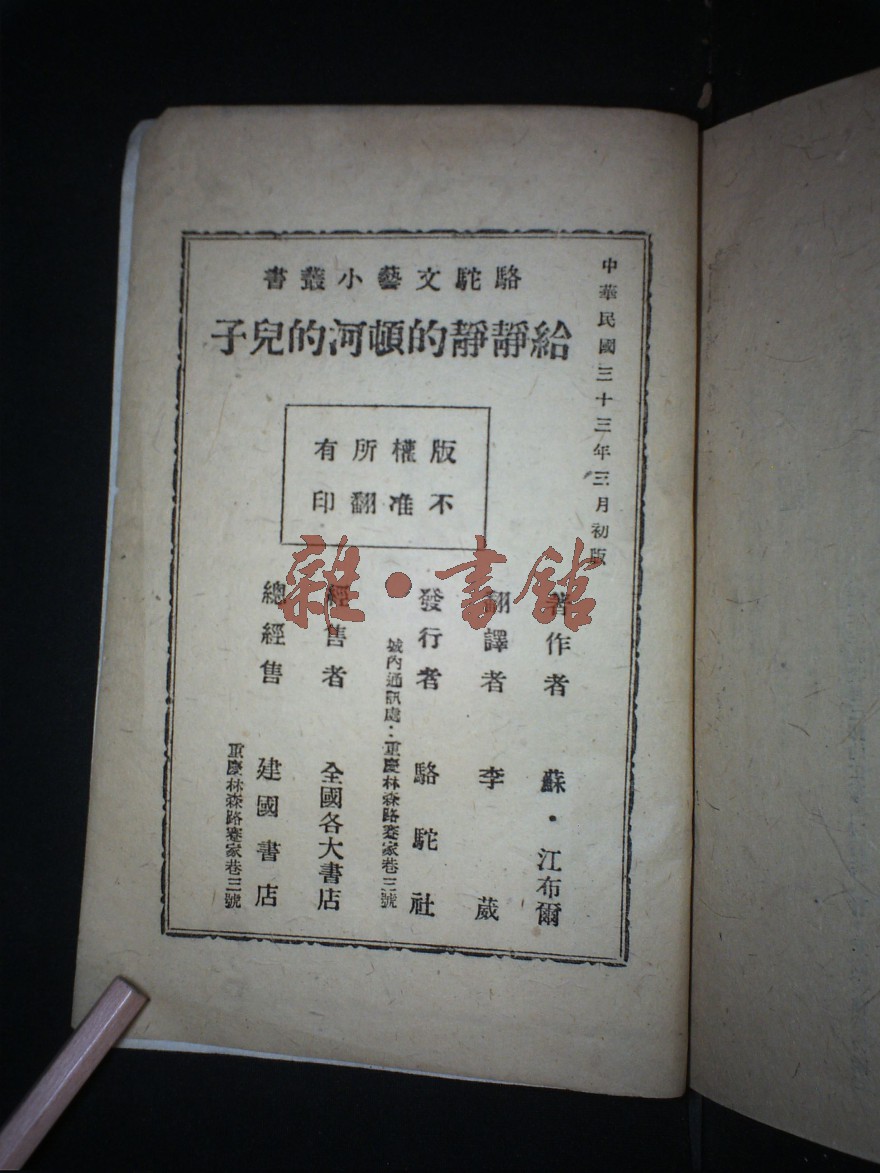 中華民國三十三年三月初版
駱駝文藝小叢書
給靜靜的頓河的兒子
版權所有
不准翻印
著作者 蘇·江布爾
翻譯者 李葳
發行者 駱駝社
城內通訊處：重慶林森路蹇家巷三號
經售者 全國各大書店
總經售 建國書店
重慶林森路蹇家巷三號
雜·書館